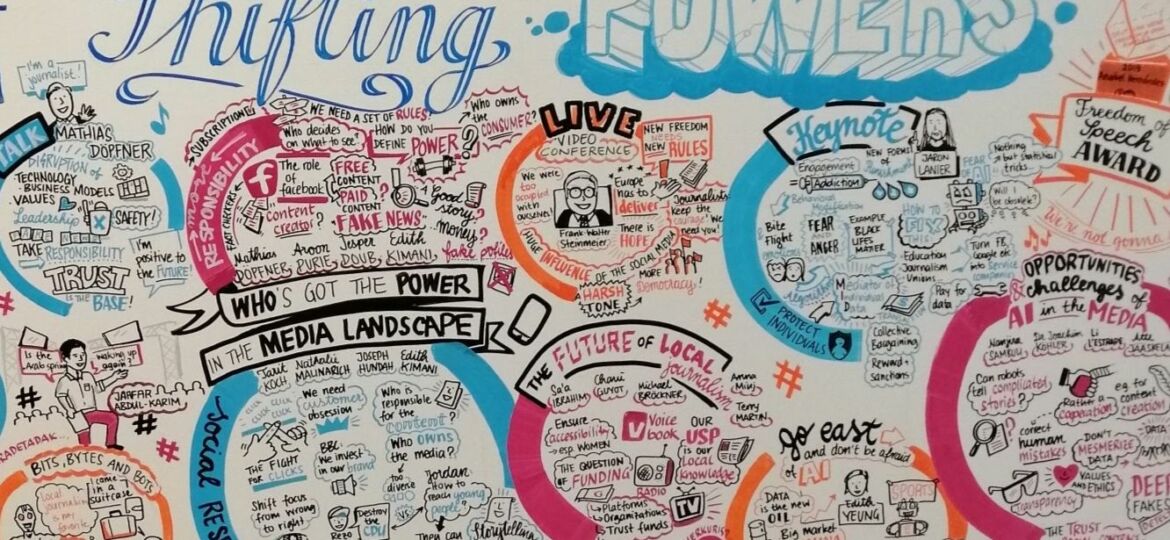 Shifting
POWERS
I'm a
journalist!
TALK
MATHIAS
DÖPFNER
DISRUPTION OF
TECHNOLOGY
- BUSINESS MODELS
VALUES
Leadership
SAFETY!
TAKE RESPONSIBILITY
I'm
positive to
the FUTURE!
TRUST
is the BASE!
SUBSCRIPTION
more RESPONSIBILITY
FACT CHECKERS
WE NEED A SET OF RULES!
Who decides
on what to see
HOW DO YOU
DEFINE POWER
?
Who owns
the
CONSUMER?
The role
of
facebook
content
creator?
FREE
CONTENT
PAID?
CONTENT
FAKE NEWS
Good
story?
Money?
fake profiles
Mathias
DÖPFNER,
Aroon
PURIE,
Jesper
DOUB,
Edith
KIMANI
WHO'S GOT THE POWER
IN THE MEDIA LANDSCAPE
LIVE
VIDEO
CONFERENCE
NEW FREEDOM
NEEDS
NEW RULES
We were
too
occupied
with
OURSELVES!
Frank-Walter
Steinmeier
Europe
has to
deliver
There is
HOPE
Journalists:
keep the
courage! We
need you!
HUGE INFLUENCE
OF THE SOCIAL MEDIA
HARSH
TONE
MORE
Democracy!
Keynote
Engagement
= Addiction
NEW FORMS of
JARON
LANIER
FEAR
OF
AI
Nothing
but statistical
tricks
Will I
be obsolete?
Behavioral
Modification
Bite
Flight
emotions
FEAR
AND
ANGER
EXAMPLE
BLACK
LIVES
MATTER
HOW TO
FIX
THIS
Education
Journalism
Unions
Turn FB,
Google etc.
into Service
Companies
Algorithm
Mediator of
Individual
Data
Pay for
data
PROTECT
INDIVIDUALS
Collective
Bargaining
Reward +
sanctions
2019
Anabel Hernández
Freedom of
Speech
AWARD
We're not gonna
OPPORTUNITIES
& challenges of
AI in the MEDIA
Dr. Joachim
KÖHLER
Li
L'ESTRADE
Can robots
tell complicated
stories?
Rather a
cooperation
e.g. for
content
creation
correct
human
mistakes
DON'T
MESMERIZE
DATA
DATA
Transparency
VALUES
AND ETHICS
DEEP
FAKE
THE TRUST
Is the
Arab spring
waking up
again?
JAAFAR
ABDUL-KARIM
#
BITS, BYTES AND BOTS
Local
journalism
is not
favorite
came
in a
suitcase
SOCIAL RES
Tarit
KOCH
Nathalie
MALINARICH
JOSEPH
HUNDAH
Edith
KIMANI
CLICK CLICK
THE FIGHT
FOR CLICKS
We need
customer
obsession
BBC:
We invest
in our brand
Who is
responsible
for the
content?
Who owns
the media?
too
diverse
Shift focus
from wrong
to right
Destroy
the
CDU
Rezo
Jordan:
How to
reach young
people?
They can
Storytelling
THE FUTURE OF LOCAL
journalism
Sa'a
IBRAHIM
Chani
GUYOT
Michael
BRÖCKNER
Amna
Terry
MARTIN
Ensure
accessibility
→ esp WOMEN
Voice
book
OUR
USP
is our
Local
knowledge
THE QUESTION
OF FUNDING
RADIO
TV
↳ Platforms
Organizations
↳ Trust funds
go east
and don't be afraid
of AI
DATA
is the new
OIL
Big market
Edith
YEUNG
SPORTS